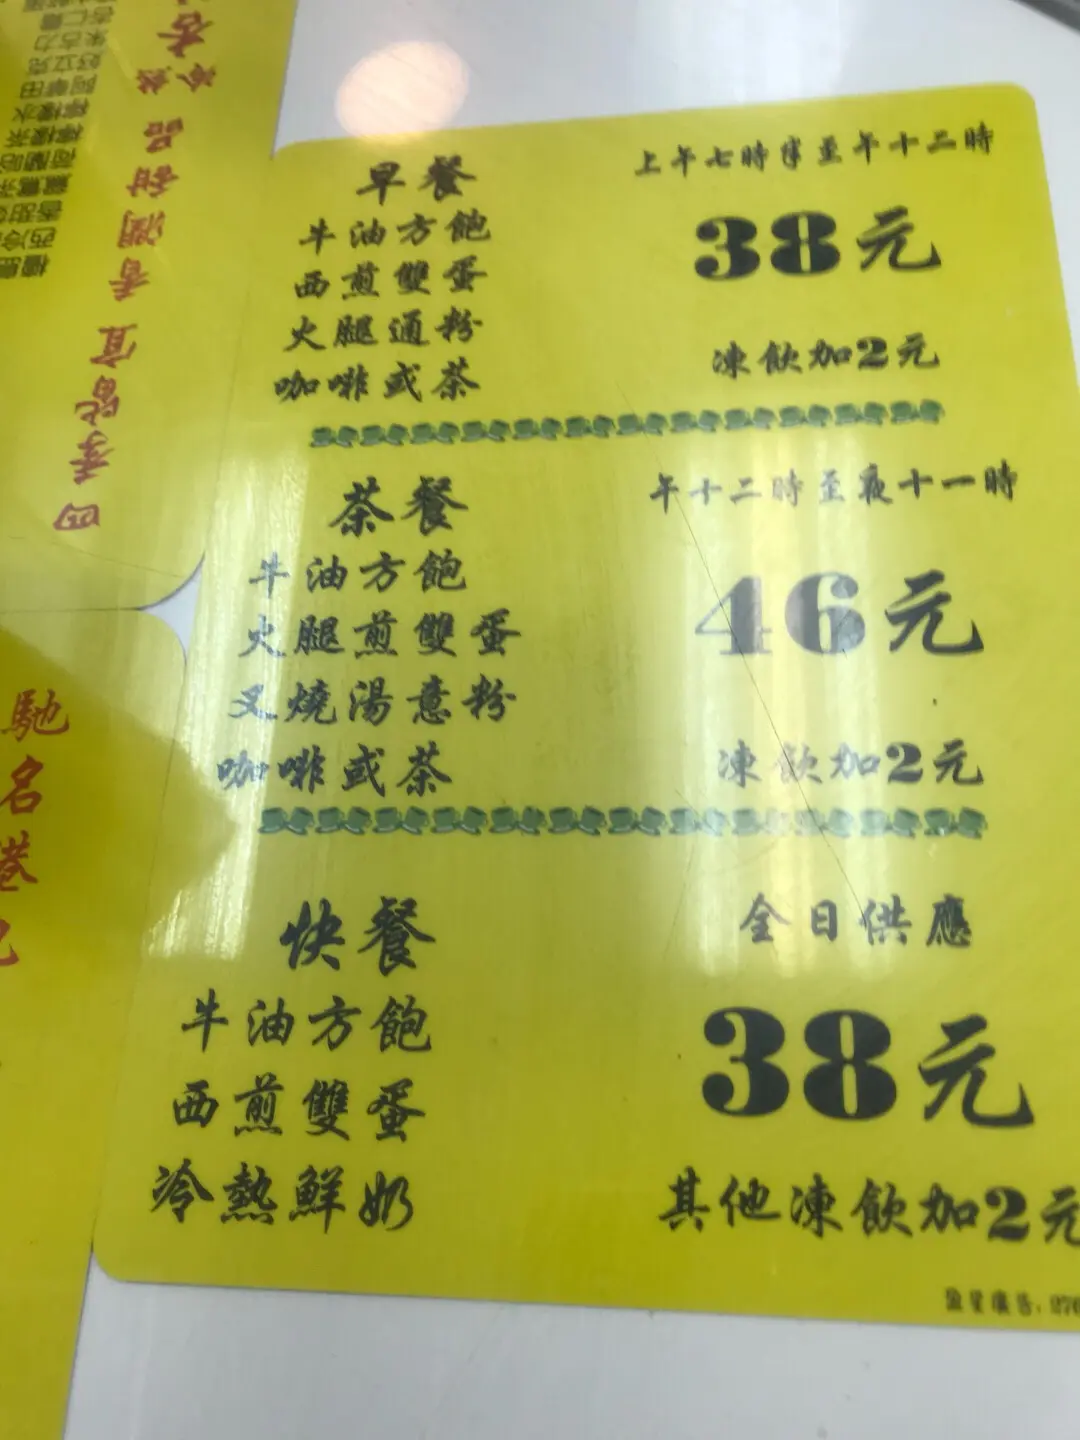 早餐
上午七時半至午十二時
牛油方飽
西煎雙蛋
38元
火腿通粉
咖啡或茶
凍飲加2元
茶餐
午十二時至夜十一時
牛油方飽
火腿煎雙蛋
46元
叉燒湯意粉
咖啡或茶
凍飲加2元
快餐
全日供應
牛油方飽
西煎雙蛋
38元
冷熱鮮奶
其他凍飲加2元
四季皆宜 香濃甜品
朱古力
好立克
阿華田
檸檬水
檸檬茶
馳名港